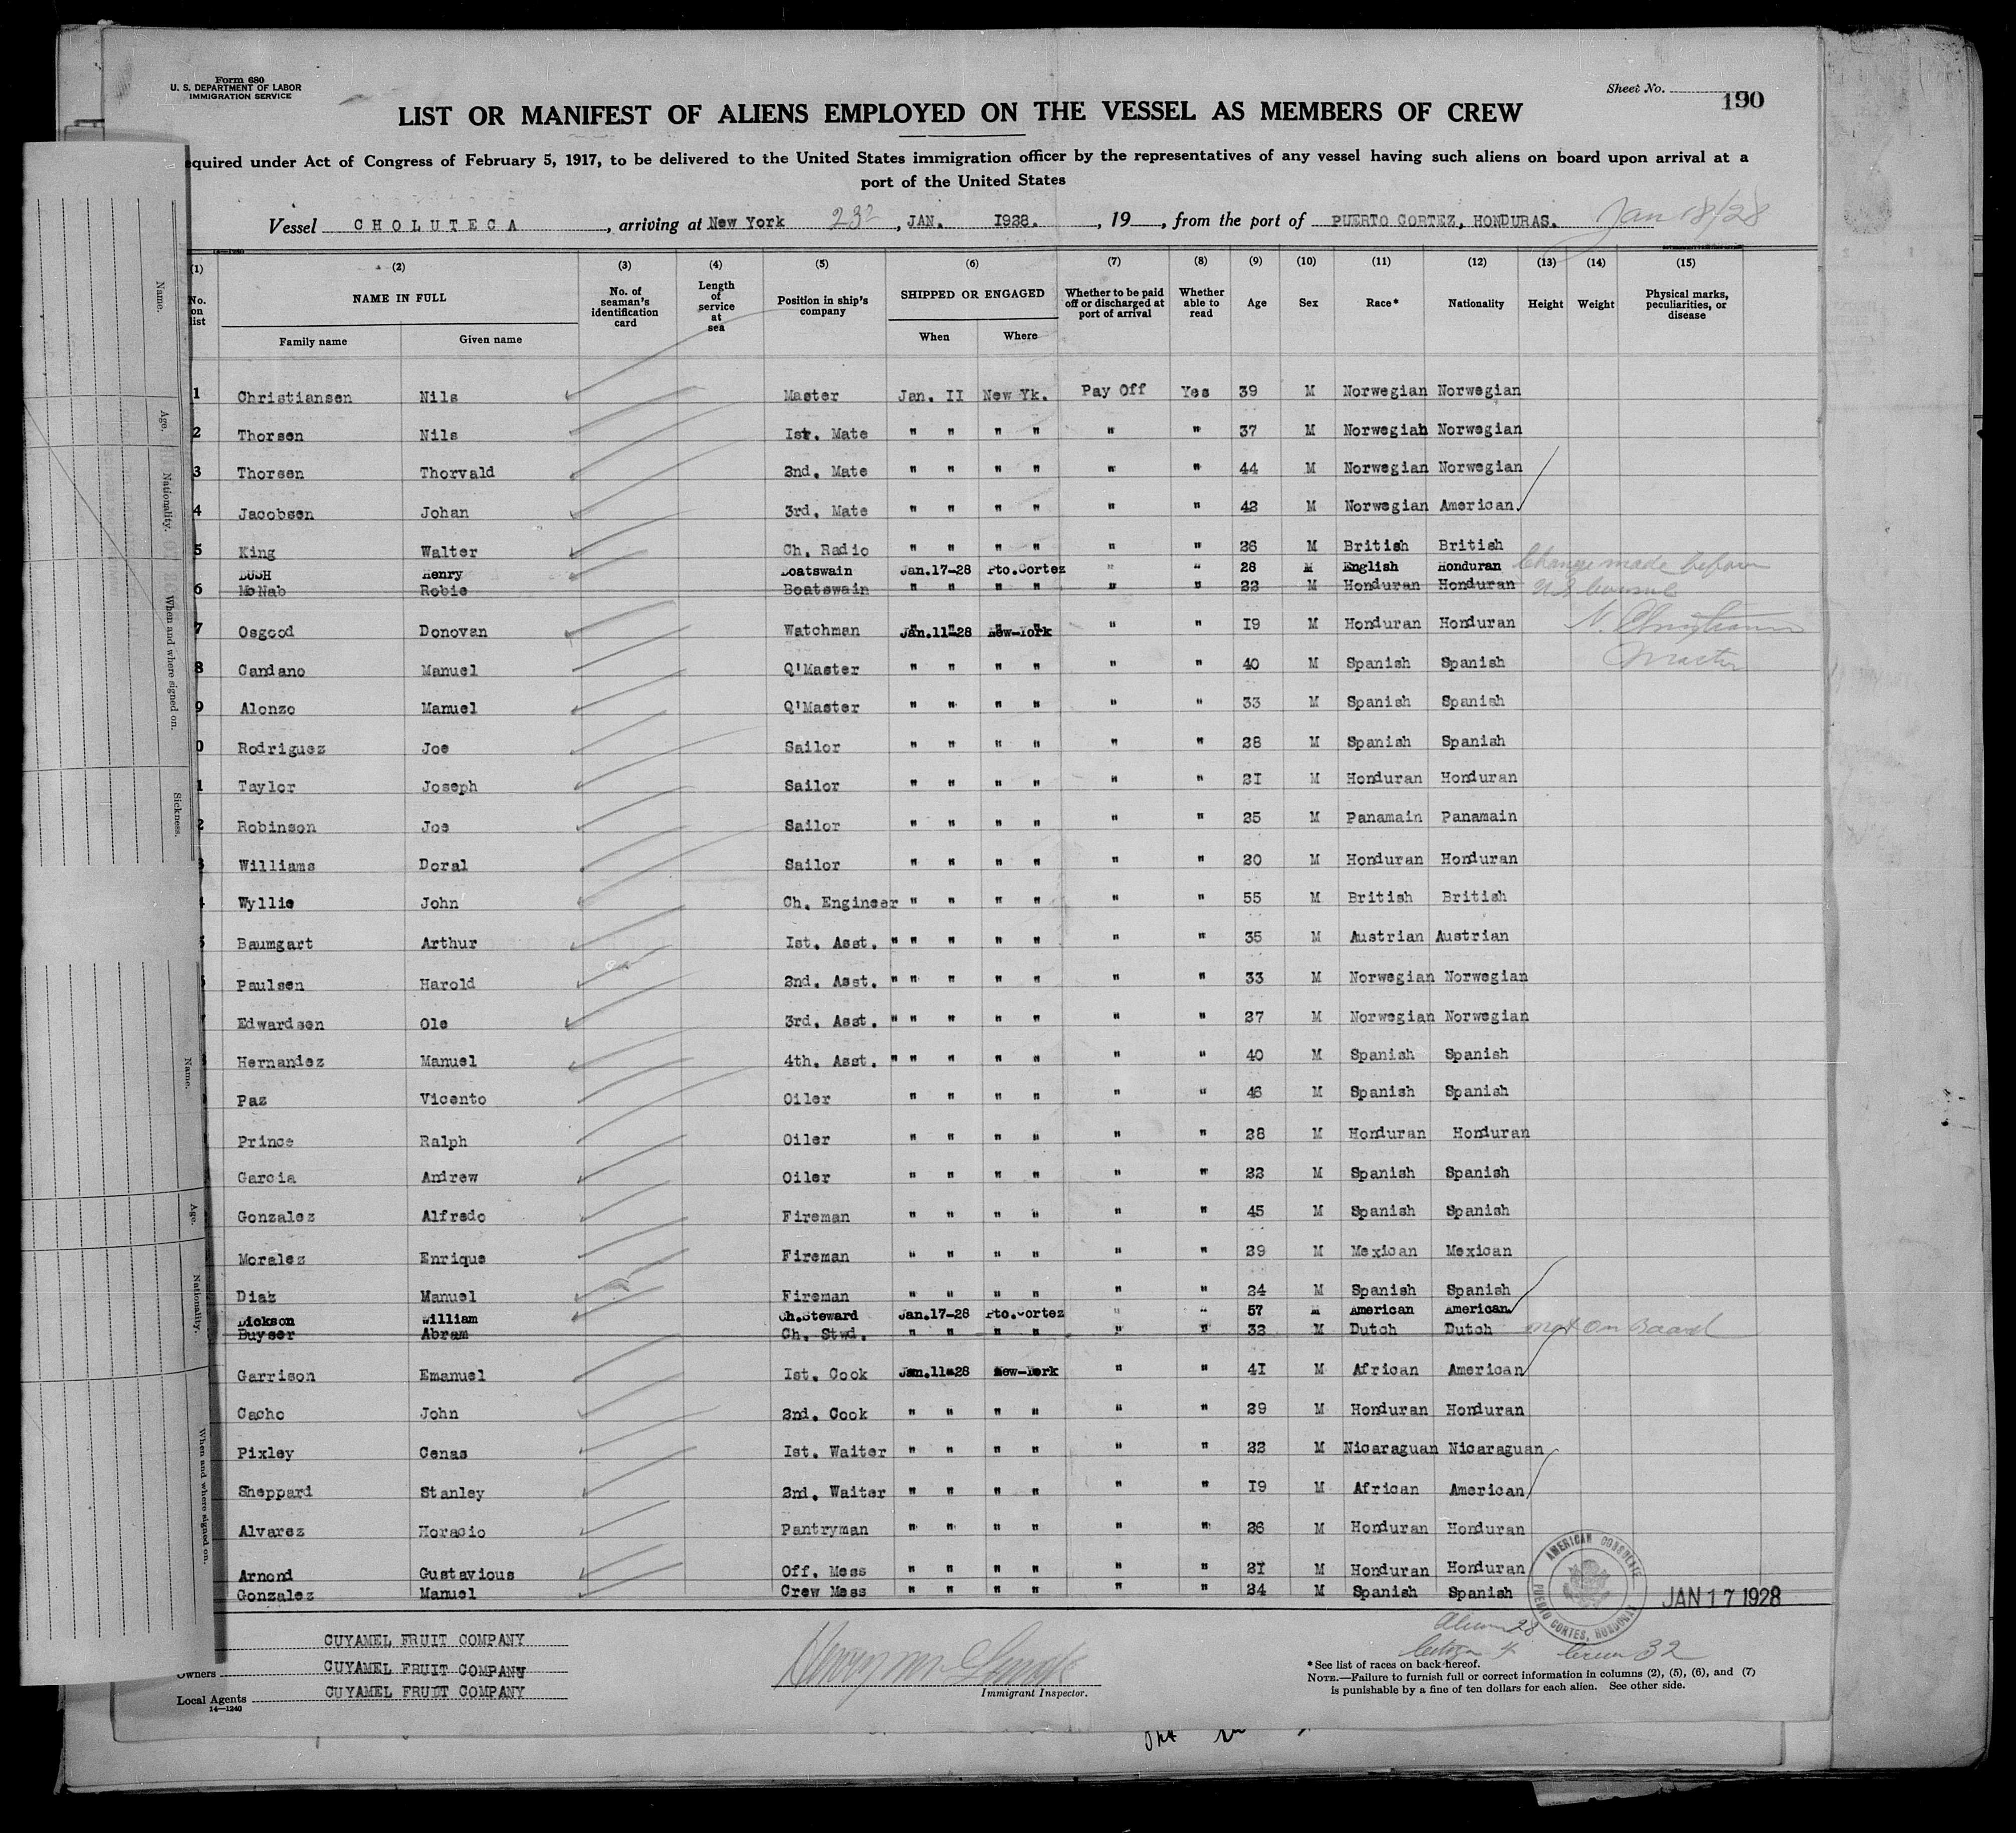 Form 680
U. S. DEPARTMENT OF LABOR
IMMIGRATION SERVICE
Sheet No.
190
LIST OR MANIFEST OF ALIENS EMPLOYED ON THE VESSEL AS MEMBERS OF CREW
equired under Act of Congress of February 5, 1917, to be delivered to the United States immigration officer by the representatives of any vessel having such aliens on board upon arrival at a
port of the United States
Vessel CHOLUTECA, arriving at New York 23, JAN. 1928., 19, from the port of PUERTO CORTEZ, HONDURAS. Jan 18/28
(1) (2) (3) (4) (5) (6) (7) (8) (9) (10) (11) (12) (13) (14) (15)
No. on list NAME IN FULL Family name Given name No. of seaman's identification card Length of service at sea Position in ship's company SHIPPED OR ENGAGED When Where Whether to be paid off or discharged at port of arrival Whether able to read Age Sex Race* Nationality Height Weight Physical marks, peculiarities, or disease
1 Christiansen Nils Master Jan. II New Yk. Pay Off Yes 39 M Norwegian Norwegian
2 Thorsen Nils Ist. Mate " " " " " " 37 M Norwegian Norwegian
3 Thorsen Thorvald 2nd. Mate " " " " " " 44 M Norwegian Norwegian
4 Jacobsen Johan 3rd. Mate " " " " " " 42 M Norwegian American
5 King Walter Ch. Radio " " " " " " 26 M British British
BUSH Henry Boatswain Jan.17-28 Pto.Cortez " " 28 M English Honduran Change made before
6 McNab Robie Boatswain " " " " " " 22 M Honduran Honduran US Consul
7 Osgood Donovan Watchman Jan.11-28 New-York " " 19 M Honduran Honduran N. Christiansen
8 Candano Manuel Q'Master " " " " " " 40 M Spanish Spanish Master
9 Alonzo Manuel Q'Master " " " " " " 33 M Spanish Spanish
0 Rodriguez Joe Sailor " " " " " " 28 M Spanish Spanish
1 Taylor Joseph Sailor " " " " " " 2I M Honduran Honduran
2 Robinson Joe Sailor " " " " " " 25 M Panamain Panamain
3 Williams Doral Sailor " " " " " " 20 M Honduran Honduran
4 Wyllie John Ch. Engineer " " " " " " 55 M British British
Baumgart Arthur Ist. Asst. " " " " " " " 35 M Austrian Austrian
Paulsen Harold 2nd. Asst. " " " " " " " 33 M Norwegian Norwegian
Edwardsen Ole 3rd. Asst. " " " " " " " 27 M Norwegian Norwegian
Hernandez Manuel 4th. Asst. " " " " " " " 40 M Spanish Spanish
Paz Vicento Oiler " " " " " " 46 M Spanish Spanish
Prince Ralph Oiler " " " " " " 28 M Honduran Honduran
Garcia Andrew Oiler " " " " " " 22 M Spanish Spanish
Gonzalez Alfredo Fireman " " " " " " 45 M Spanish Spanish
Moralez Enrique Fireman " " " " " " 29 M Mexican Mexican
Diaz Manuel Fireman " " " " " " 24 M Spanish Spanish
Dickson William Ch.Steward Jan.17-28 Pto.Cortez " " 57 M American American
Buyser Abram Ch. Stwd. " " " " " " 32 M Dutch Dutch not on Board
Garrison Emanuel Ist. Cook Jan.11-28 New-York " " 4I M African American
Cacho John 2nd. Cook " " " " " " 29 M Honduran Honduran
Pixley Cenas Ist. Waiter " " " " " " 22 M Nicaraguan Nicaraguan
Sheppard Stanley 2nd. Waiter " " " " " " I9 M African American
Alvarez Horacio Pantryman " " " " " " 26 M Honduran Honduran
Arnond Gustavious Off. Mess " " " " " " 2I M Honduran Honduran
Gonzalez Manuel Crew Mess " " " " " " 24 M Spanish Spanish
AMERICAN CONSULATE
PUERTO CORTES, HONDURAS
JAN 17 1928
Aliens 28
Citizen 4 Crew 32
CUYAMEL FRUIT COMPANY
Owners CUYAMEL FRUIT COMPANY
Local Agents CUYAMEL FRUIT COMPANY
14—1240
Immigrant Inspector.
* See list of races on back hereof.
NOTE.—Failure to furnish full or correct information in columns (2), (5), (6), and (7)
is punishable by a fine of ten dollars for each alien. See other side.
Name.
Age.
Nationality.
When and where signed on.
Sickness.
Name.
Age.
Nationality.
When and where signed on.